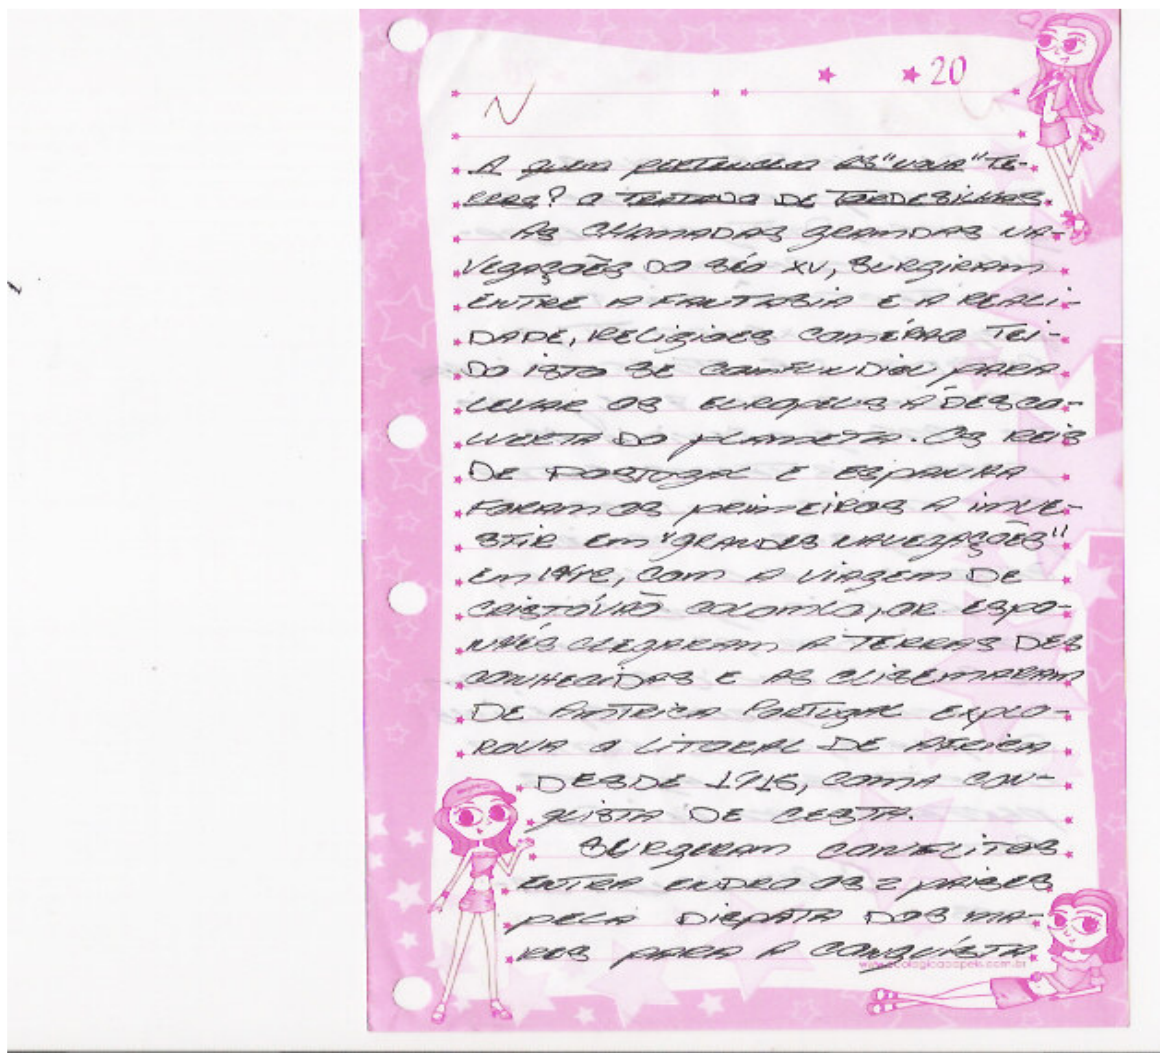 20
A QUEM PERTENCEM AS "NOVA" TE-
RRAS? O TRATADO DE TORDESILHAS
AS CHAMADAS GRANDAS NA-
VEGAÇÕES DO SÉO XV, SURGIRAM
ENTRE A FANTASIA E A REALI-
DADE, RELIGIOES COMÉRAO TEI-
DO ISTO SE CONFUNDIU PARA
LEVAR OS EUROPEUS A DESCO-
UERTA DO PLANETA. OS REIS
DE PORTUGAL E ESPANHA
FORAM OS PRIMEIROS A INVE-
STIR EM "GRANDES NAVEGAÇÕES"
EM COM A VIAGEM DE
CRISTÓVÃO COLOMLO, OR ESPO-
NHÉS CLEGARAM A TERRAS DES
CONHECIDAS E AS
DE PORTUGAL EXPLO-
ROVA O LITORAL DE AFRICA
DESDE COMA CON-
QUISTA DE CESTA.
SURGERAM CONFLITOS
ENTRA OS 2 PAISES
PELA DISPATA DOS MA-
RES PARA A CONQUÍSTA